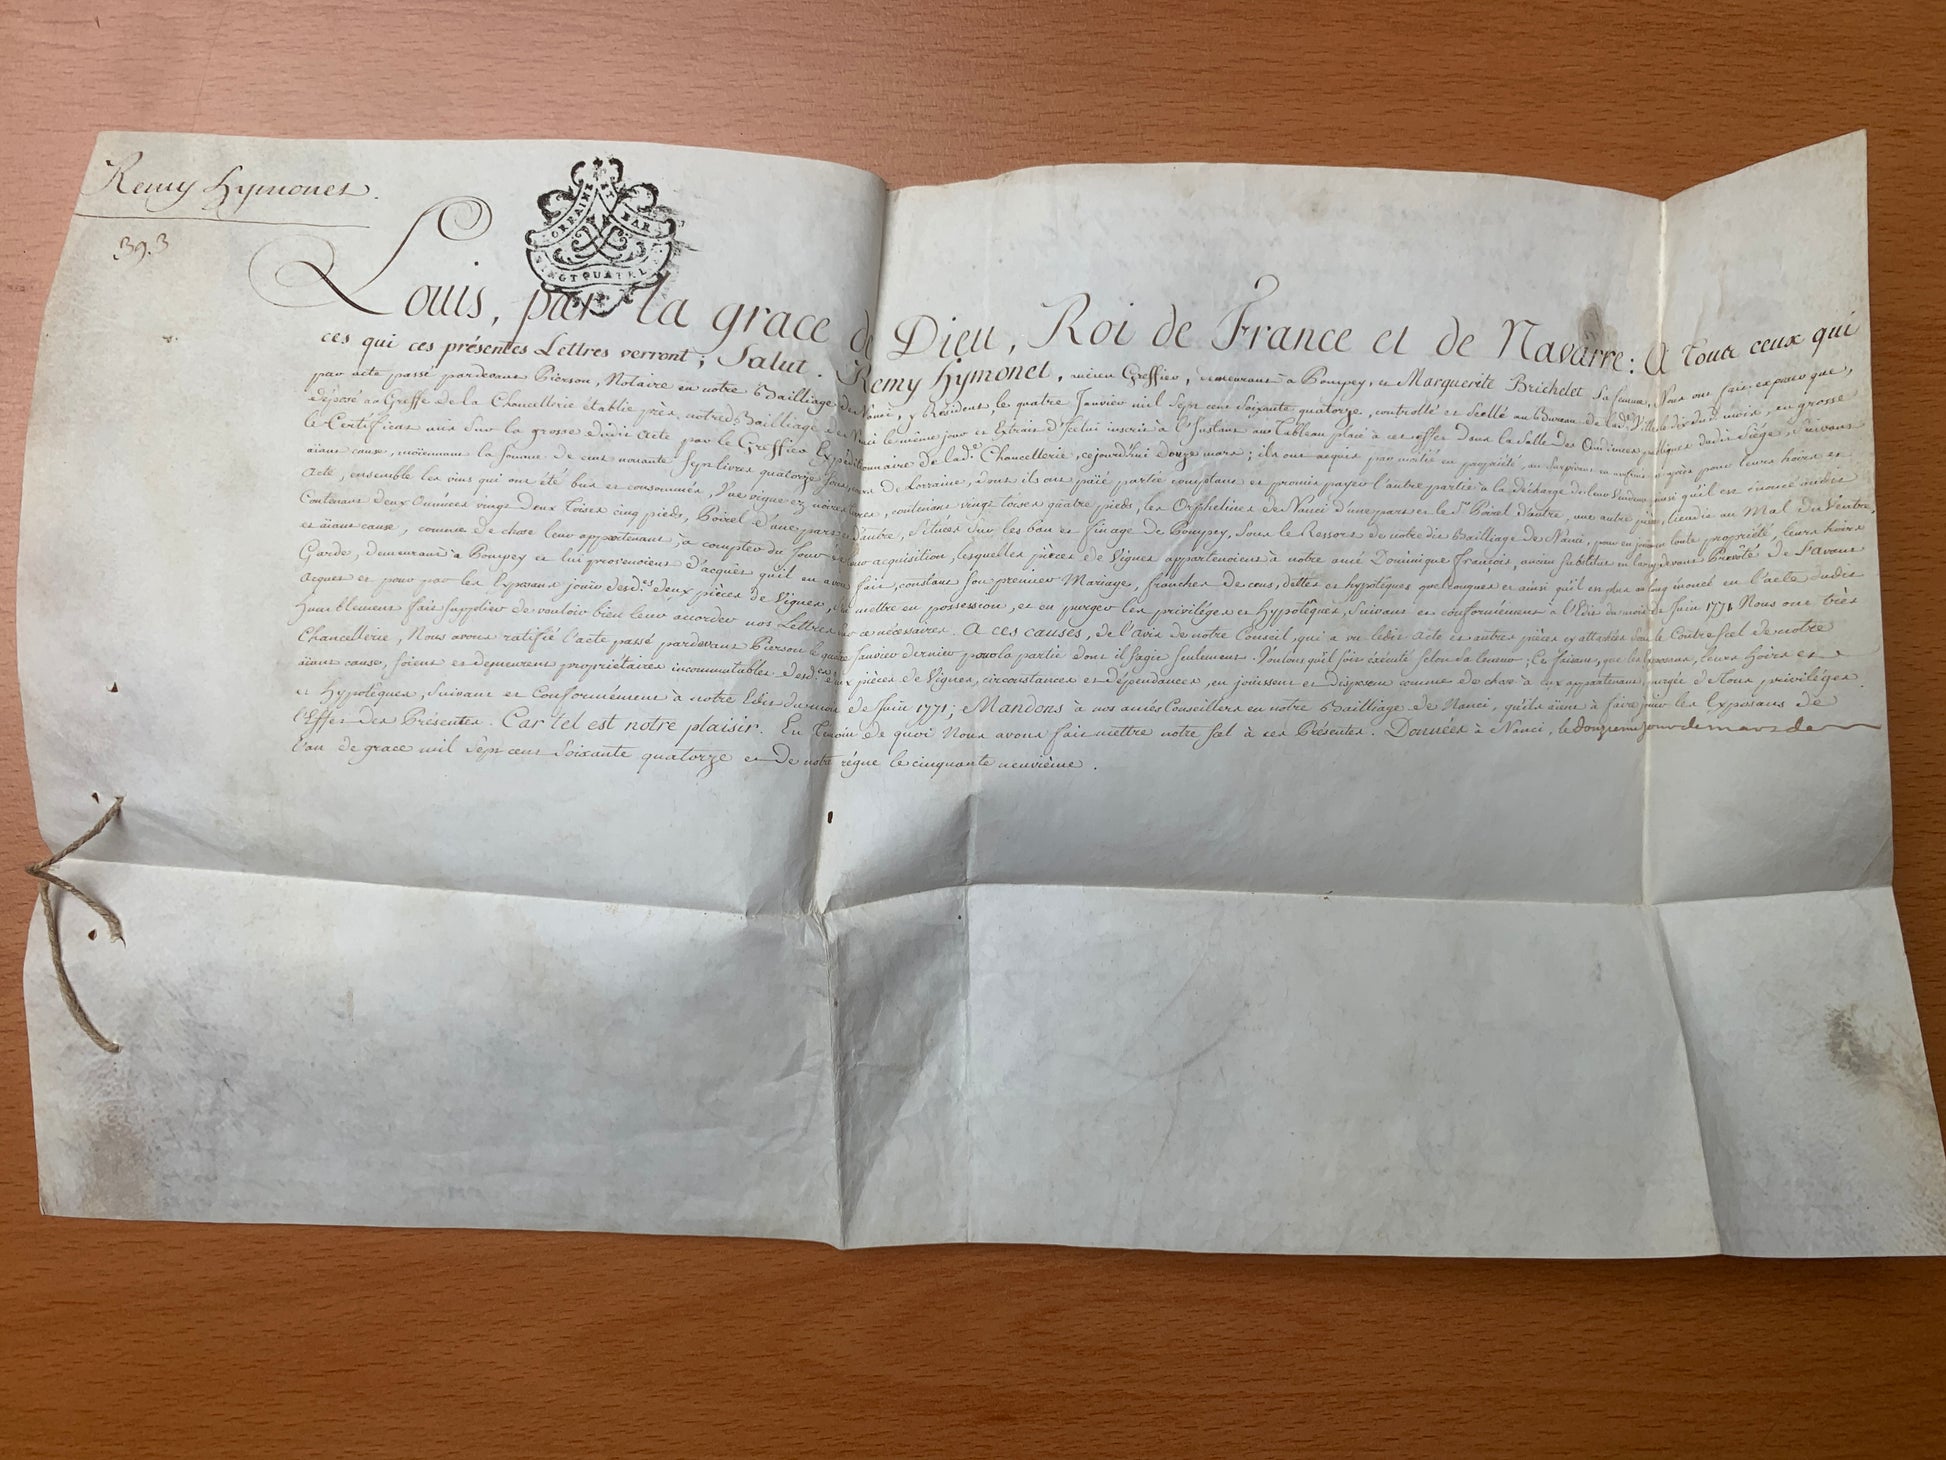 Remy Hymonet.
393
LORRAINE ET BAR
VINGT QUATRE
Louis, par la grace de Dieu, Roi de France et de Navarre: A tous ceux qui
ces qui ces présentes Lettres verront; Salut. Remy Hymonet, ancien Greffier, demeurant à Pompey, et Marguerite Brichelet Sa femme, Nous ont fait exposer que,
par acte passé pardevant Pierson, Notaire en notre Bailliage de Nanci, y Résident, le quatre Janvier mil Sept cent Soixante quatorze, controllé et Scellé au Bureau de lad. Ville le dix du d. mois, en grosse
déposé au Greffe de la Chancellerie établie près notre d. Bailliage de Nanci le même jour et Extrait d'Icelui inscrit à l'Instant au Tableau placé à cet effet dans la Salle des Audiences publiques dudit Siége, Suivant
le Certificat mis Sur la grosse dudit Acte par le Greffier Expéditionnaire de lad. Chancellerie, cejourd'hui douze mars; ils ont acquis par moitié en propriété, pour leurs hoirs et
aiant cause, moiennant la Somme de cent nonante Sept livres quatorze Sous, cours de Lorraine, dont ils ont paié partie comptant et promis payer l'autre partie à la décharge de leur Vendeur ainsi qu'il est énoncé audit
Acte, ensemble les vins qui ont été bus et consommés, Une vigne ez noires terres, contenant vingt toises quatre pieds, les Orphelines de Nanci d'une part et le Sr. Poirel d'autre, une autre lieudit au Mal du Ventre,
Contenant deux Omées vingt deux Toises cinq pieds, Poirel d'une part et d'autre, Situées Sur les ban et finage de Pompey, Sous le Ressort de notre dit Bailliage de Nanci, pour en jouir en toute propriété, leurs hoirs
et aiant cause, comme de chose leur appartenant, à compter du Jour de leur acquisition, lesquelles pièces de Vignes appartenoient à notre amé Dominique François, ancien Substitut en la cy devant Prevôté de l'Avant
Garde, demeurant à Pompey et lui provenoient d'acquêt qu'il en avoit fait, constant Son premier Mariage, franches de cens, dettes et hypotéques quelconques et ainsi qu'il est plus au long énoncé en l'acte dudit
Acquêt et pour par les Exposans jouir desd. deux pièces de Vignes, S'en mettre en possession, et en purger les priviléges et hypotéques, Suivant et conformément à l'Edit du mois de Juin 1771, Nous ont très
humblement fait Supplier de vouloir bien leur accorder nos Lettres sur ce nécessaires. A ces causes, de l'avis de notre Conseil, qui a vu ledit Acte et autres pièces cy attachées Sous le Contre Scel de notre
Chancellerie, Nous avons ratifié l'acte passé pardevant Pierson le quatre Janvier dernier pour la partie dont il S'agit Seulement. Voulons qu'il Soit éxécuté Selon Sa teneur; Ce faisant, que les Exposans, leurs hoirs et
aiant cause, Soient et demeurent propriétaires incommutables desd. deux pièces de Vignes, circonstances et dépendances, en jouissent et disposent comme de chose à eux appartenant, purgée de tous priviléges
et hypotéques, Suivant et Conformément à notre Edit du mois de Juin 1771; Mandons à nos amés Conseillers en notre Bailliage de Nanci, qu'ils aient à faire jouir les Exposans de
l'Effet des Présentes. Car tel est notre plaisir. En Témoin de quoi Nous avons fait mettre notre Scel à ces Présentes. Données à Nanci, le Douzieme jour de mars de
l'an de grace mil Sept cent Soixante quatorze et de notre régne le cinquante neuvième.